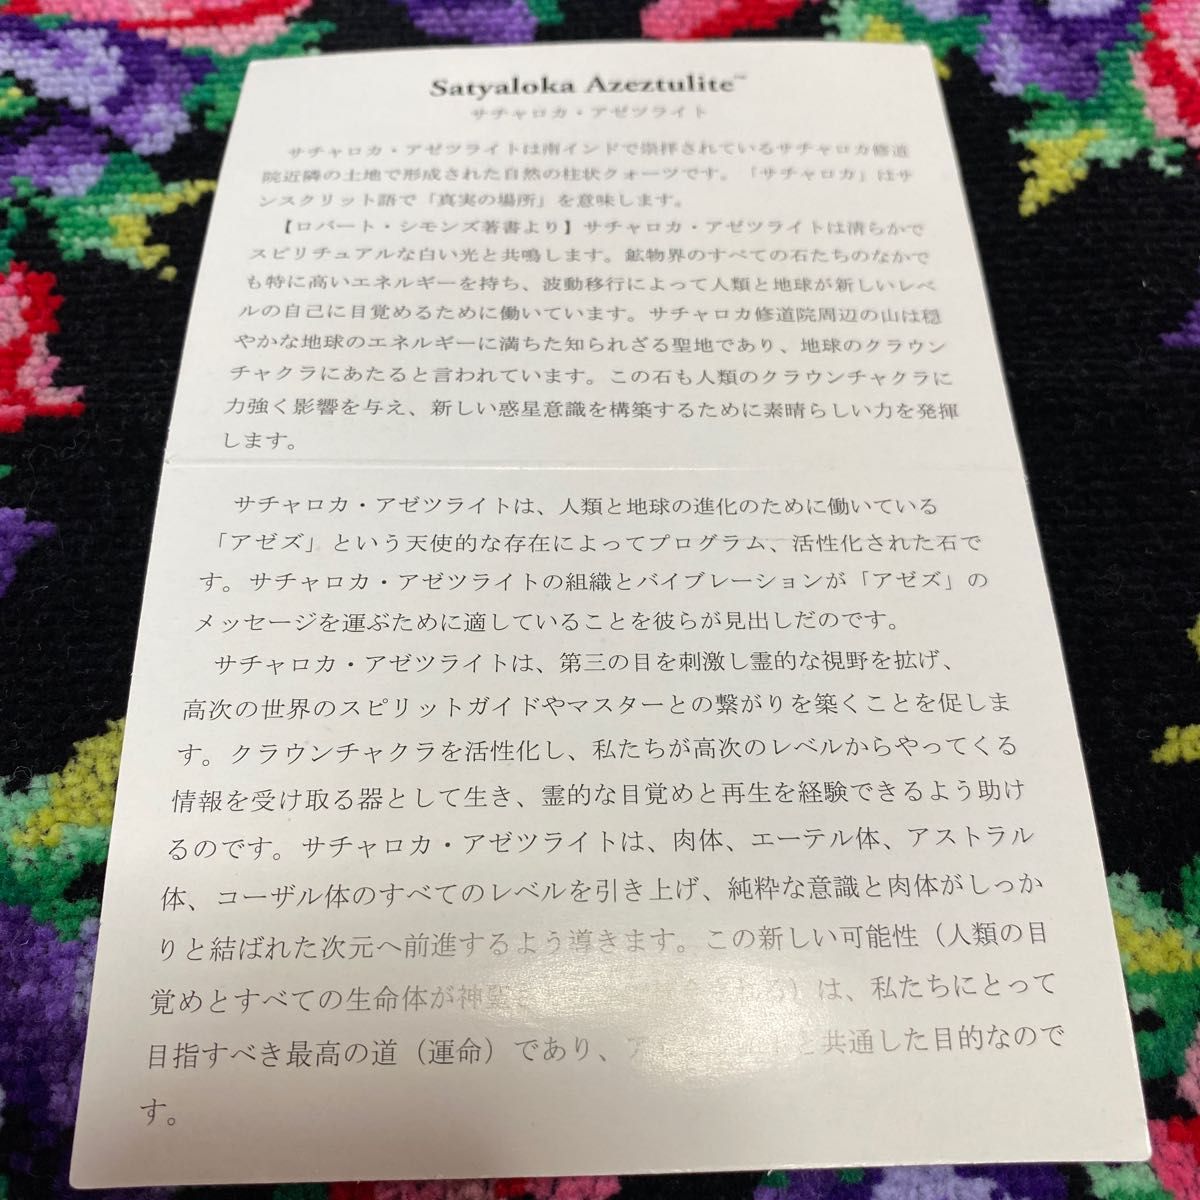 Satyaloka Azeztulite™
サチャロカ・アゼツライト
サチャロカ・アゼツライトは南インドで崇拝されているサチャロカ修道
院近隣の土地で形成された自然の柱状クォーツです。「サチャロカ」はサ
ンスクリット語で「真実の場所」を意味します。
【ロバート・シモンズ著書より】サチャロカ・アゼツライトは清らかで
スピリチュアルな白い光と共鳴します。鉱物界のすべての石たちのなかで
も特に高いエネルギーを持ち、波動移行によって人類と地球が新しいレベ
ルの自己に目覚めるために働いています。サチャロカ修道院周辺の山は穏
やかな地球のエネルギーに満ちた知られざる聖地であり、地球のクラウン
チャクラにあたると言われています。この石も人類のクラウンチャクラに
力強く影響を与え、新しい惑星意識を構築するために素晴らしい力を発揮
します。
サチャロカ・アゼツライトは、人類と地球の進化のために働いている
「アゼズ」という天使的な存在によってプログラム、活性化された石で
す。サチャロカ・アゼツライトの組織とバイブレーションが「アゼズ」の
メッセージを運ぶために適していることを彼らが見出しだのです。
サチャロカ・アゼツライトは、第三の目を刺激し霊的な視野を拡げ、
高次の世界のスピリットガイドやマスターとの繋がりを築くことを促しま
す。クラウンチャクラを活性化し、私たちが高次のレベルからやってくる
情報を受け取る器として生き、霊的な目覚めと再生を経験できるよう助け
るのです。サチャロカ・アゼツライトは、肉体、エーテル体、アストラル
体、コーザル体のすべてのレベルを引き上げ、純粋な意識と肉体がしっか
りと結ばれた次元へ前進するよう導きます。この新しい可能性（人類の目
覚めとすべての生命体が神聖）は、私たちにとって
目指すべき最高の道（運命）であり、と共通した目的なので
す。